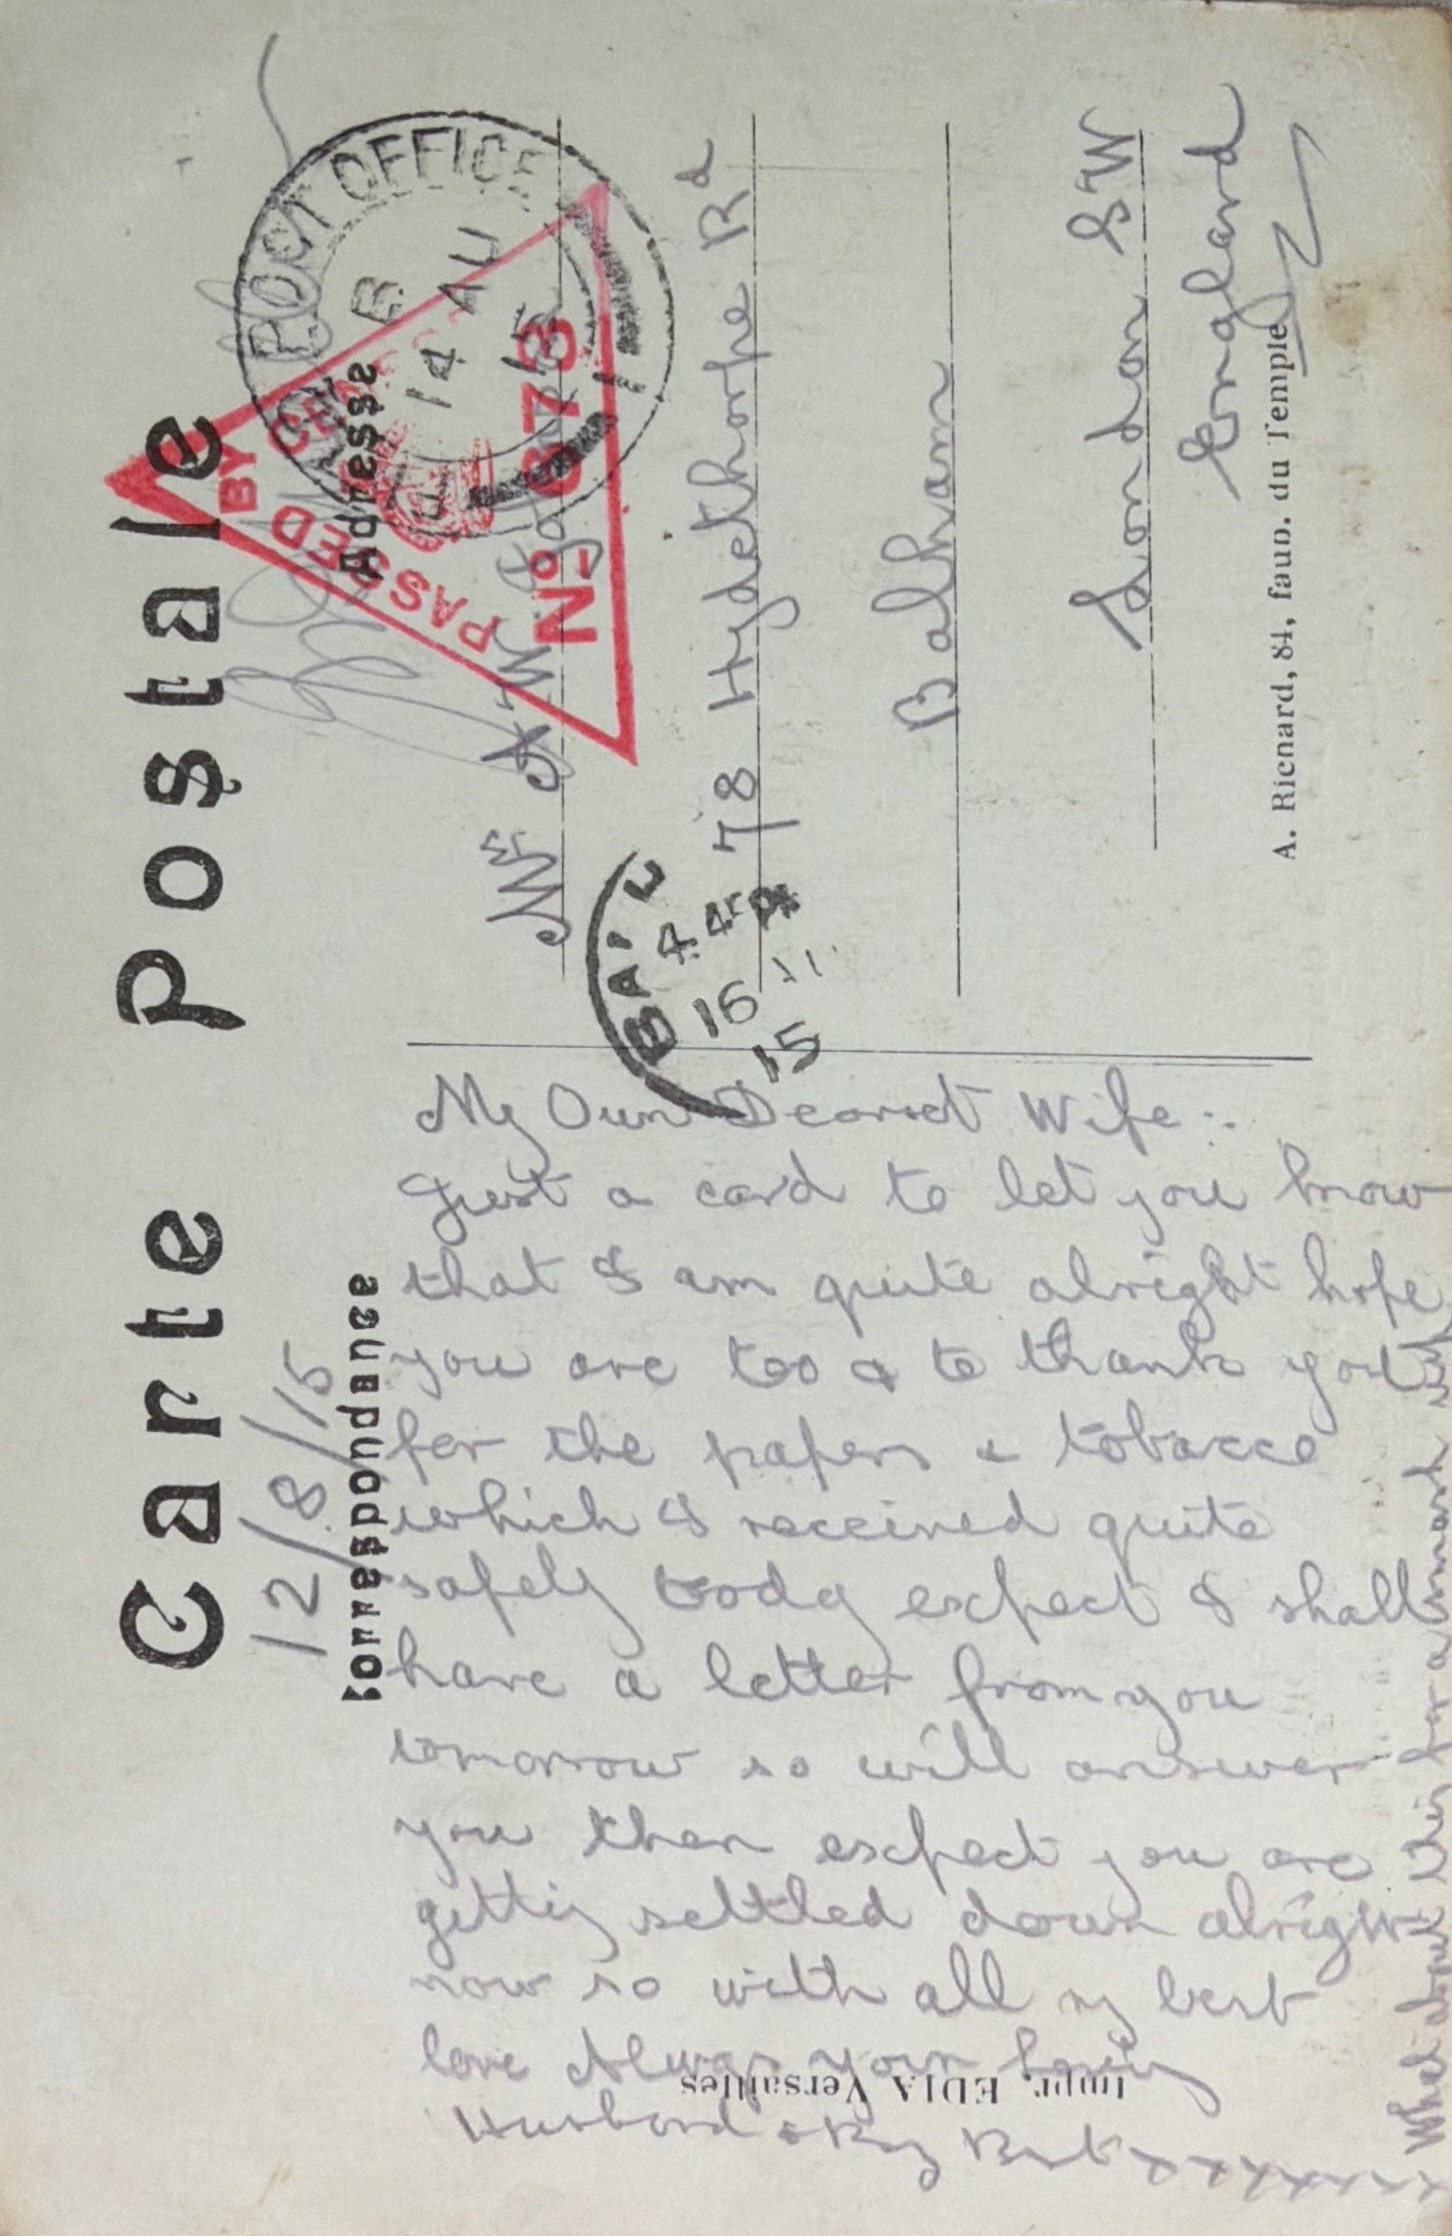 Carte Postale
12/8/15
Correspondance
Adresse
My Own Dearest Wife :.
Just a card to let you know
that I am quite alright hope
you are too & to thank you
for the papers & tobacco
which I received quite
safely today expect I shall
have a letter from you
tomorrow so will answer
you then expect you are
getting settled down alright
now so with all my best
love Always your loving
Husband & Boy Bert xxxxxxx
What about this for a smart
POST OFFICE
B
14 AU
15
PASSED BY CENSOR
No 673
BAL
4.45 PM
16
15
Mrs A. W.
78 Hydethorpe Rd
Balham
London SW
England
A. Ricnard, 84, faub. du Temple
Impr. EDIA Versailles